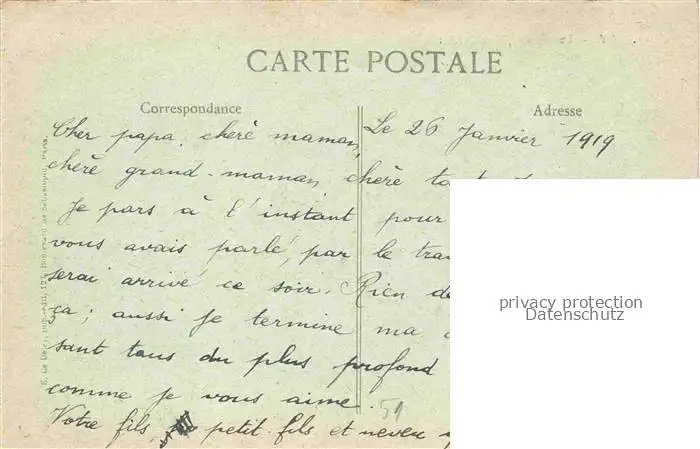 CARTE POSTALE
Correspondance
Adresse
Le 26 Janvier 1919
Cher papa, chère maman,
chère grand-maman, chère
Je pars à l'instant pour
vous avais parlé, par le
serai arrivé ce soir. Rien de
ça; aussi je termine ma
sant tous du plus profond
comme je vous aime.
Votre fils, petit-fils et neveu
59
privacy protection
Datenschutz